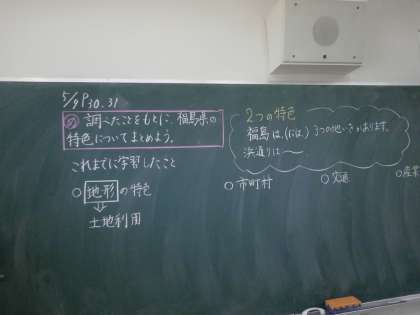 5/9 P30.31
め 調べたことをもとに、福島県の
特色についてまとめよう。
これまでに学習したこと
○地形の特色
⇓
土地利用
2つの特色
福島は、(には) 3つの地いきがあります。
浜通りは──
○市町村
○交通
○産業